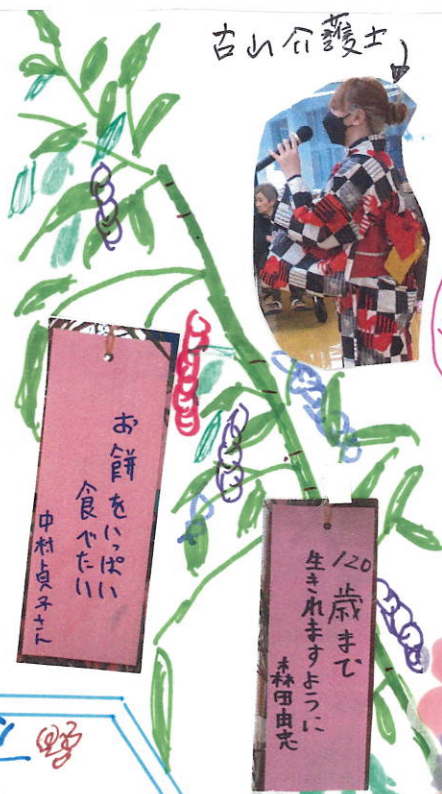 古山介護士
お餅をいっぱい
食べたい
中村貞子さん
120歳まで
生きれますように
森田由忠
野